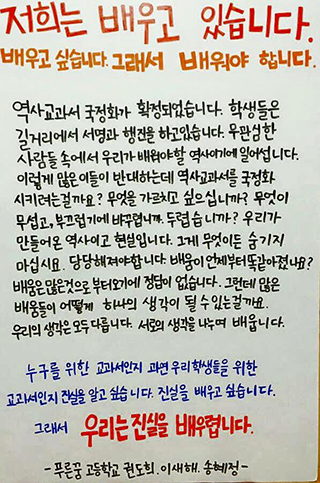 저희는 배우고 있습니다.
배우고 싶습니다. 그래서 배워야 합니다.
역사교과서 국정화가 확정되었습니다. 학생들은
길거리에서 서명과 행진을 하고있습니다. 무관심한
사람들 속에서 우리가 배워야할 역사이기에 일어섭니다.
이렇게 많은 이들이 반대하는데 역사교과서를 국정화
시키려는걸까요? 무엇을 가르치고 싶으십니까? 무엇이
무섭고, 부끄럽기에 바꾸럽니까. 두렵습니까? 우리가
만들어온 역사이고 현실입니다. 그게 무엇이든 숨기지
마십시요. 당당해져야합니다. 배움이 언제부터 똑같아졌나요?
배움은 많은것으로부터오기에 정답이 없습니다. 그런데 많은
배움들이 어떻게 하나의 생각이 될 수 있는걸까요.
우리의 생각은 모두 다릅니다. 서로의 생각을 나누며 배웁니다.
누구를 위한 교과서인지 과연 우리 학생들을 위한
교과서인지 진실을 알고 싶습니다. 진실을 배우고 싶습니다.
그래서 우리는 진실을 배우렵니다.
- 푸른꿈 고등학교 권도희. 이새해. 송혜정 -